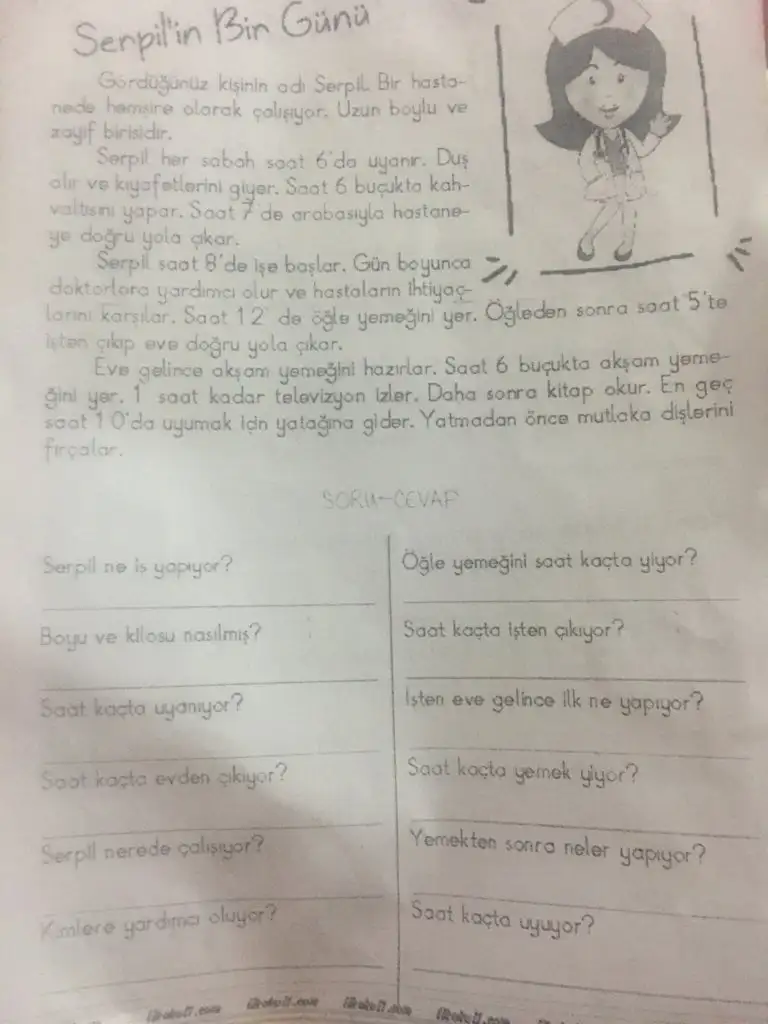 Serpil'in Bir Günü
Gördüğünüz kişinin adı Serpil. Bir hasta-
nede hemşire olarak çalışıyor. Uzun boylu ve
zayıf birisidir.
Serpil her sabah saat 6'da uyanır. Duş
alır ve kıyafetlerini giyer. Saat 6 buçukta kah-
valtısını yapar. Saat 7'de arabasıyla hastane-
ye doğru yola çıkar.
Serpil saat 8'de işe başlar. Gün boyunca
doktorlara yardımcı olur ve hastaların ihtiyaç-
larını karşılar. Saat 12' de öğle yemeğini yer. Öğleden sonra saat 5'te
işten çıkıp eve doğru yola çıkar.
Eve gelince akşam yemeğini hazırlar. Saat 6 buçukta akşam yeme-
ğini yer. 1 saat kadar televizyon izler. Daha sonra kitap okur. En geç
saat 10'da uyumak için yatağına gider. Yatmadan önce mutlaka dişlerini
fırçalar.
SORU-CEVAP
Serpil ne iş yapıyor?
Boyu ve kilosu nasılmış?
Saat kaçta uyanıyor?
Saat kaçta evden çıkıyor?
Serpil nerede çalışıyor?
Kimlere yardımcı oluyor?
Öğle yemeğini saat kaçta yiyor?
Saat kaçta işten çıkıyor?
İşten eve gelince ilk ne yapıyor?
Saat kaçta yemek yiyor?
Yemekten sonra neler yapıyor?
Saat kaçta uyuyor?